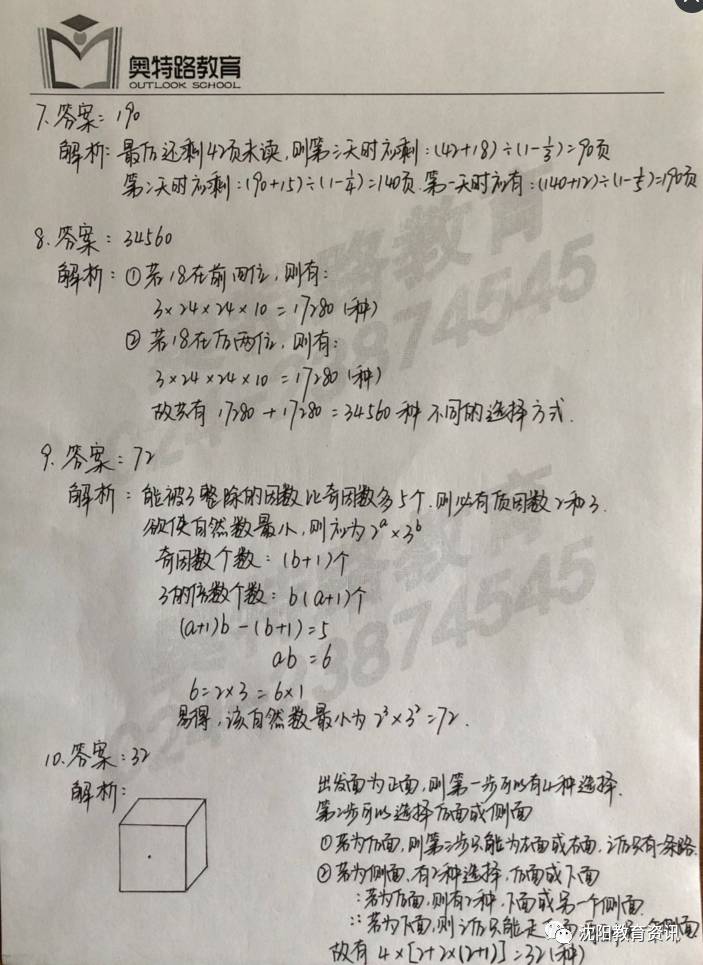 奥特路教育
OUTLOOK SCHOOL
7.答案:190
解析:最后还剩42页未读,则第三天时应剩:(42+18)÷(1-1/3)=90页
第二天时应剩:(90+15)÷(1-1/4)=140页.第一天时应有:(140+12)÷(1-1/5)=190页
8.答案:34560
解析:①若18在前两位,则有:
3×24×24×10=17280(种)
②若18在后两位,则有:
3×24×24×10=17280(种)
故共有17280+17280=34560种不同的选择方式.
9.答案:72
解析:能被3整除的因数比奇因数多5个,则必有质因数2和3.
欲使自然数最小,则应为2^a×3^b
奇因数个数:(b+1)个
3的倍数个数:b(a+1)个
(a+1)b-(b+1)=5
ab=6
6=2×3=6×1
易得,该自然数最小为2^3×3^2=72.
10.答案:32
解析:
出发面为正面,则第一步可以有4种选择.
第二步可以选择后面或侧面
①若为后面,则第三步只能为左面或右面,之后只有一条路.
②若为侧面,有2种选择,后面或下面
:若为后面,则有2种,下面或另一个侧面
::若为下面,则之后只能走
侧面
故有4×[2+2×(2+1)]=32(种)
沈阳教育资讯
路教育
3874545
教育
024-23874545